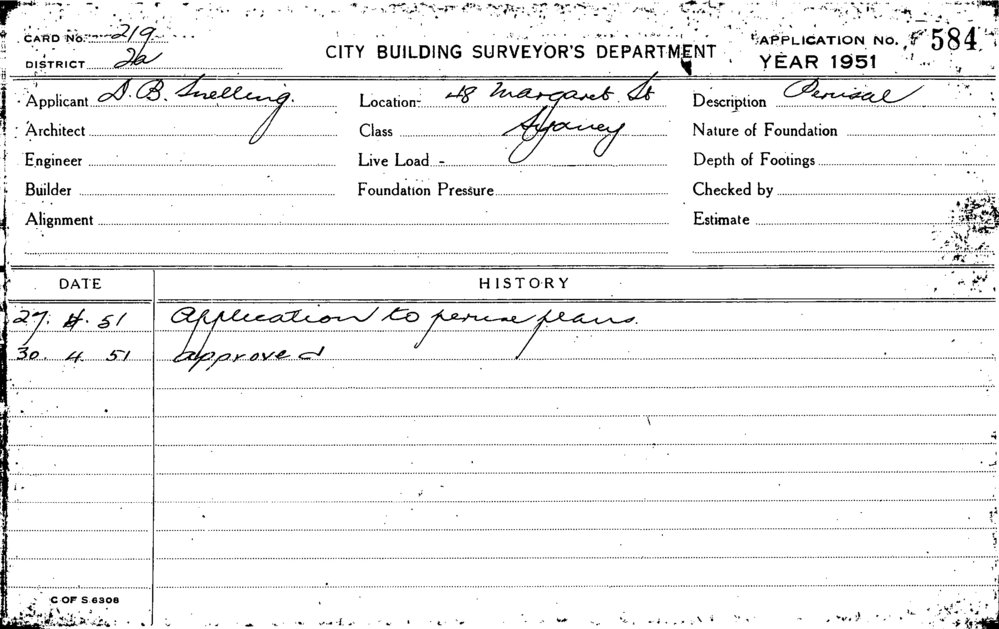 CARD No. 219
DISTRICT 2a
CITY BUILDING SURVEYOR'S DEPARTMENT
APPLICATION No. 584
YEAR 1951
Applicant D. B. Snelling. Location- 48 Margaret St Description Perusal
Architect Class Sydney Nature of Foundation
Engineer Live Load - Depth of Footings
Builder Foundation Pressure Checked by
Alignment Estimate
DATE HISTORY
27. 4. 51 Application to peruse plans.
30. 4. 51 approved
C OF S 6308